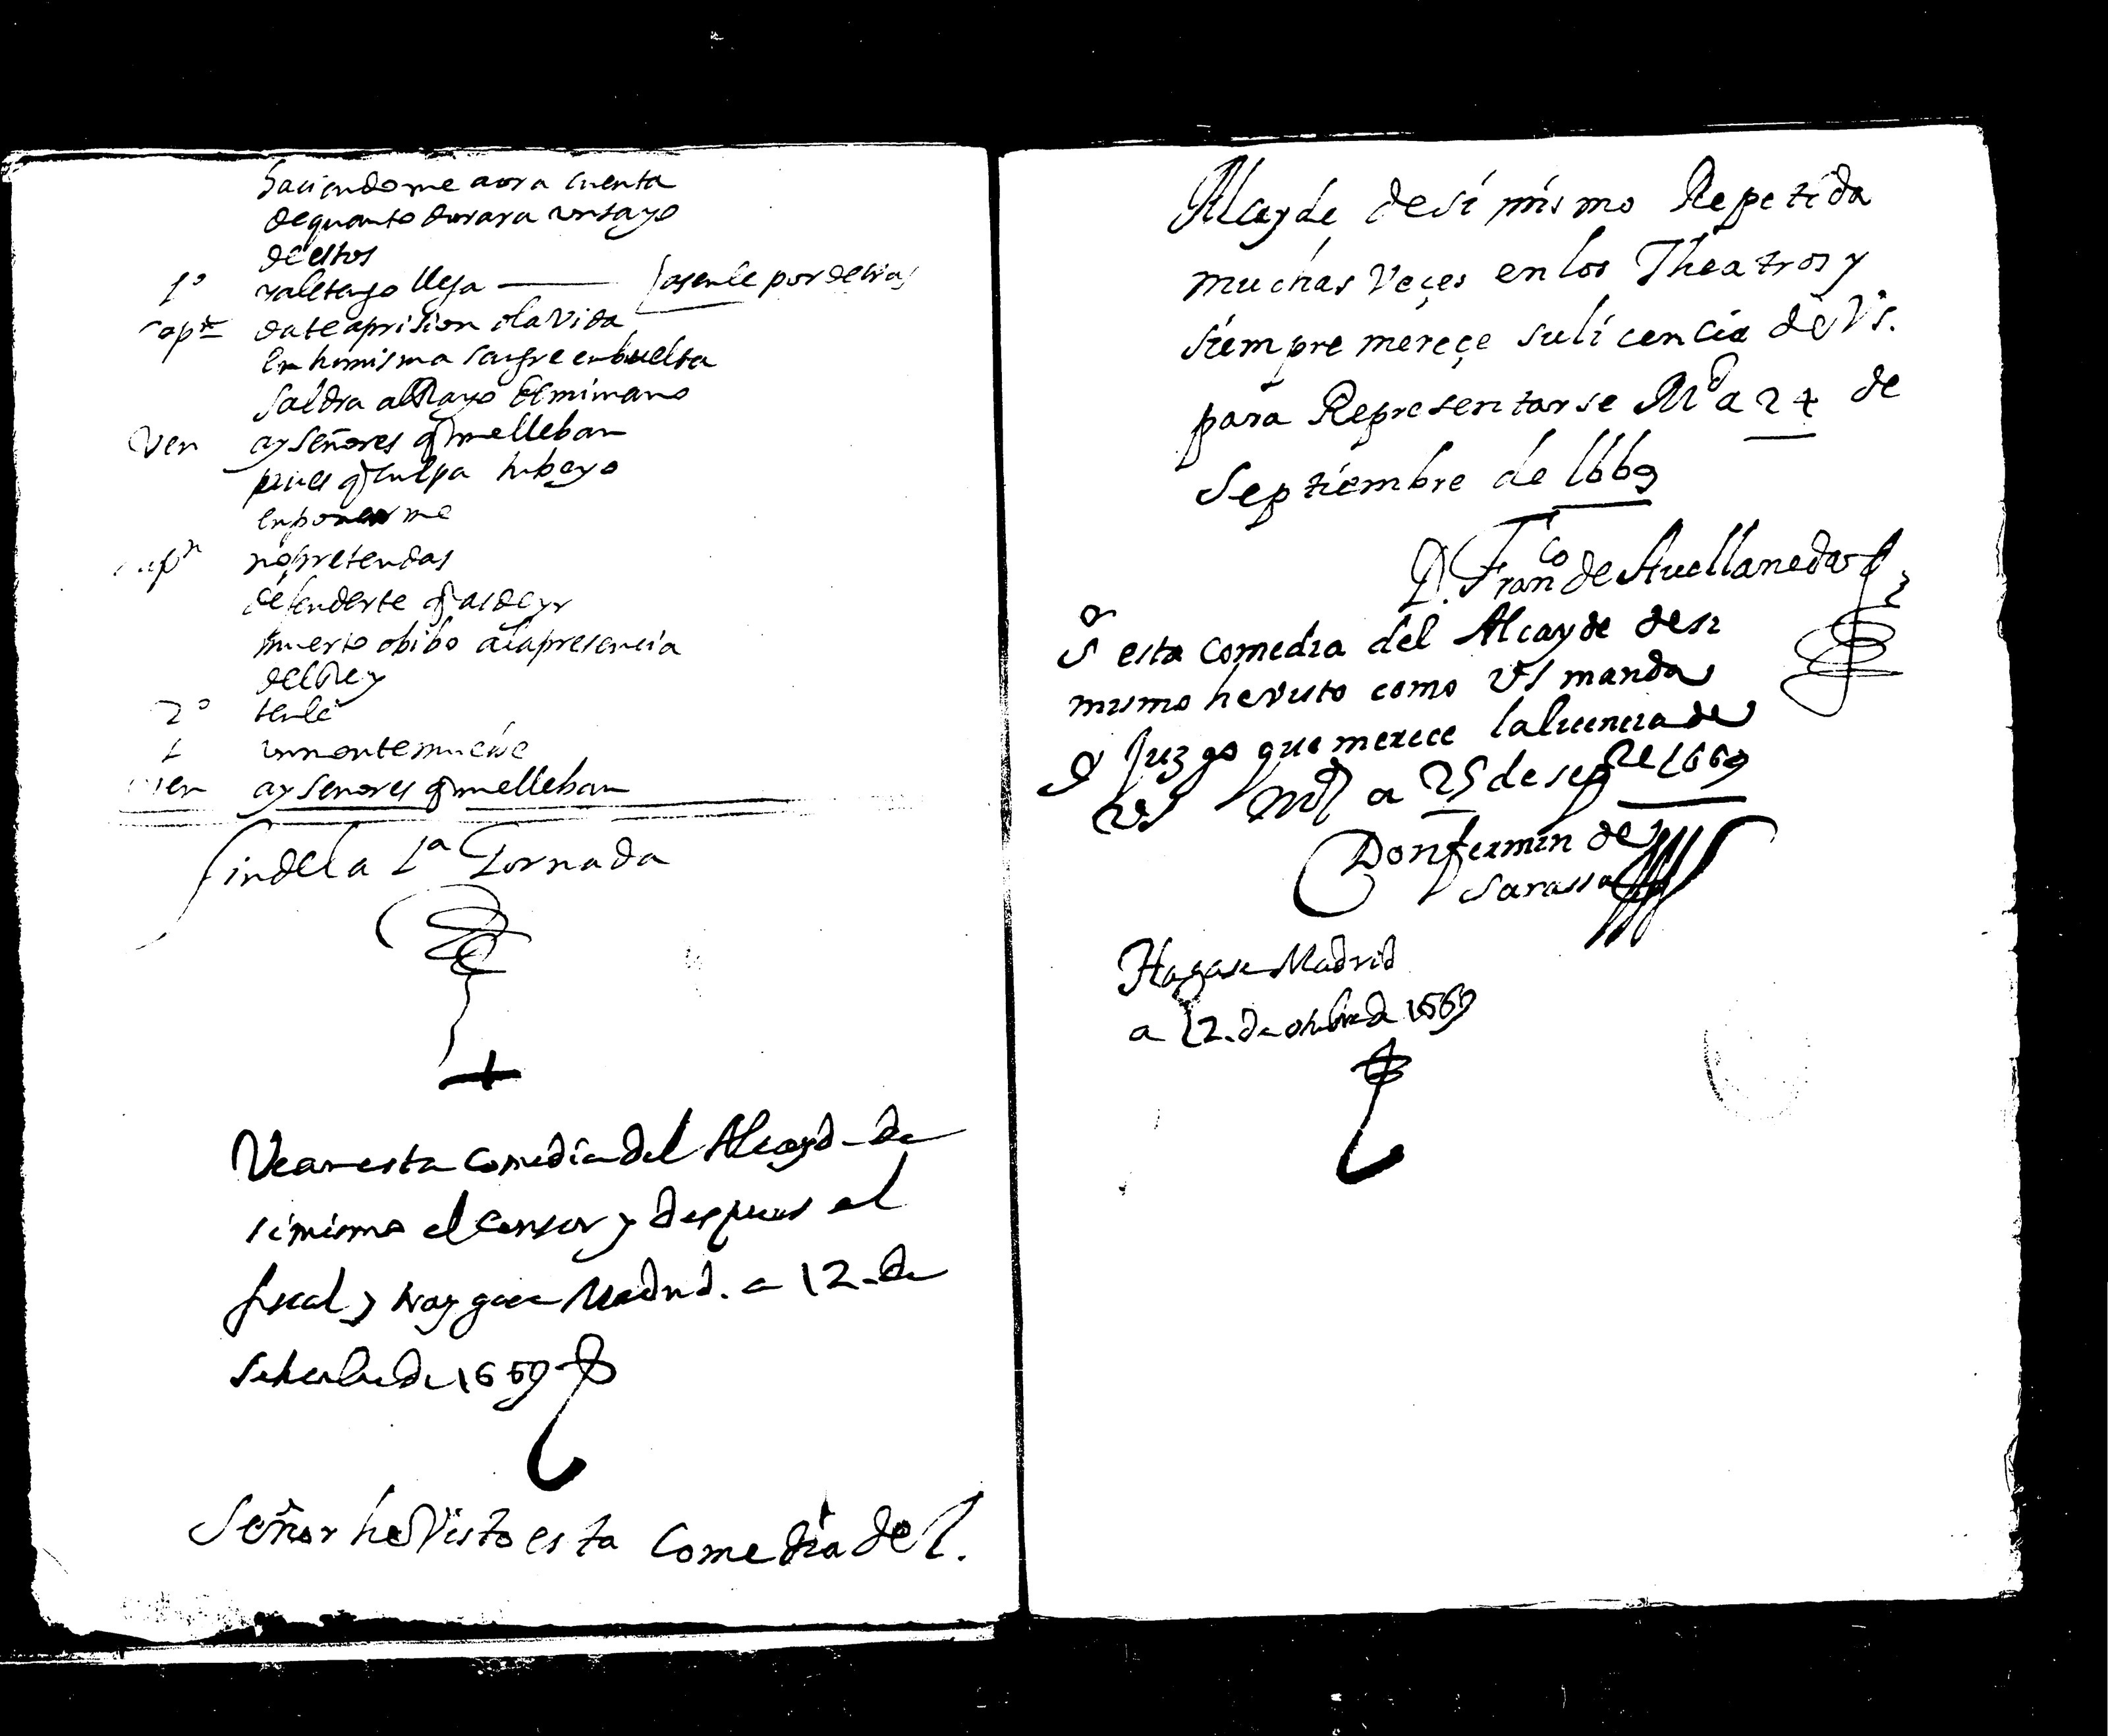 haciendome aora cuenta
dequanto durara unsayo
de estos
1º yaletengo llega —— asenle por detras
capn date aprision olavida
en tumisma sangre enbuelta
saldra al Rayo de mi mano
Ven ay señores q melleban
pues q culpa tubeyo
enponerme
capn nopretendas
defenderte q as de yr
muerto obibo alapresencia
del Rey
2º tenle
1 un monte mueve
Ven ay señores q melleban
fin de la 1ª Jornada
Vean esta comedia del Alcayde de
si mismo el Censor y despues el
fiscal y traygase Madrid. a 12. de
setiembre de 1669
Señor he Visto esta Comedia del.
Alcayde de si mismo Repetida
muchas Veçes en los Theatros y
siempre mereçe su licencia de Vs.
para Representarse Md a 24 de
Septiembre de 1669
D. Franco de Avellaneda
Sor esta comedia del Alcayde de si
mismo he visto como VS manda
y Juzgo que merece la licencia de
VS Md a 25 de sepre 1669
Don fermin de
Sarassa
Hagase Madrid
a 12. de otubre de 1669